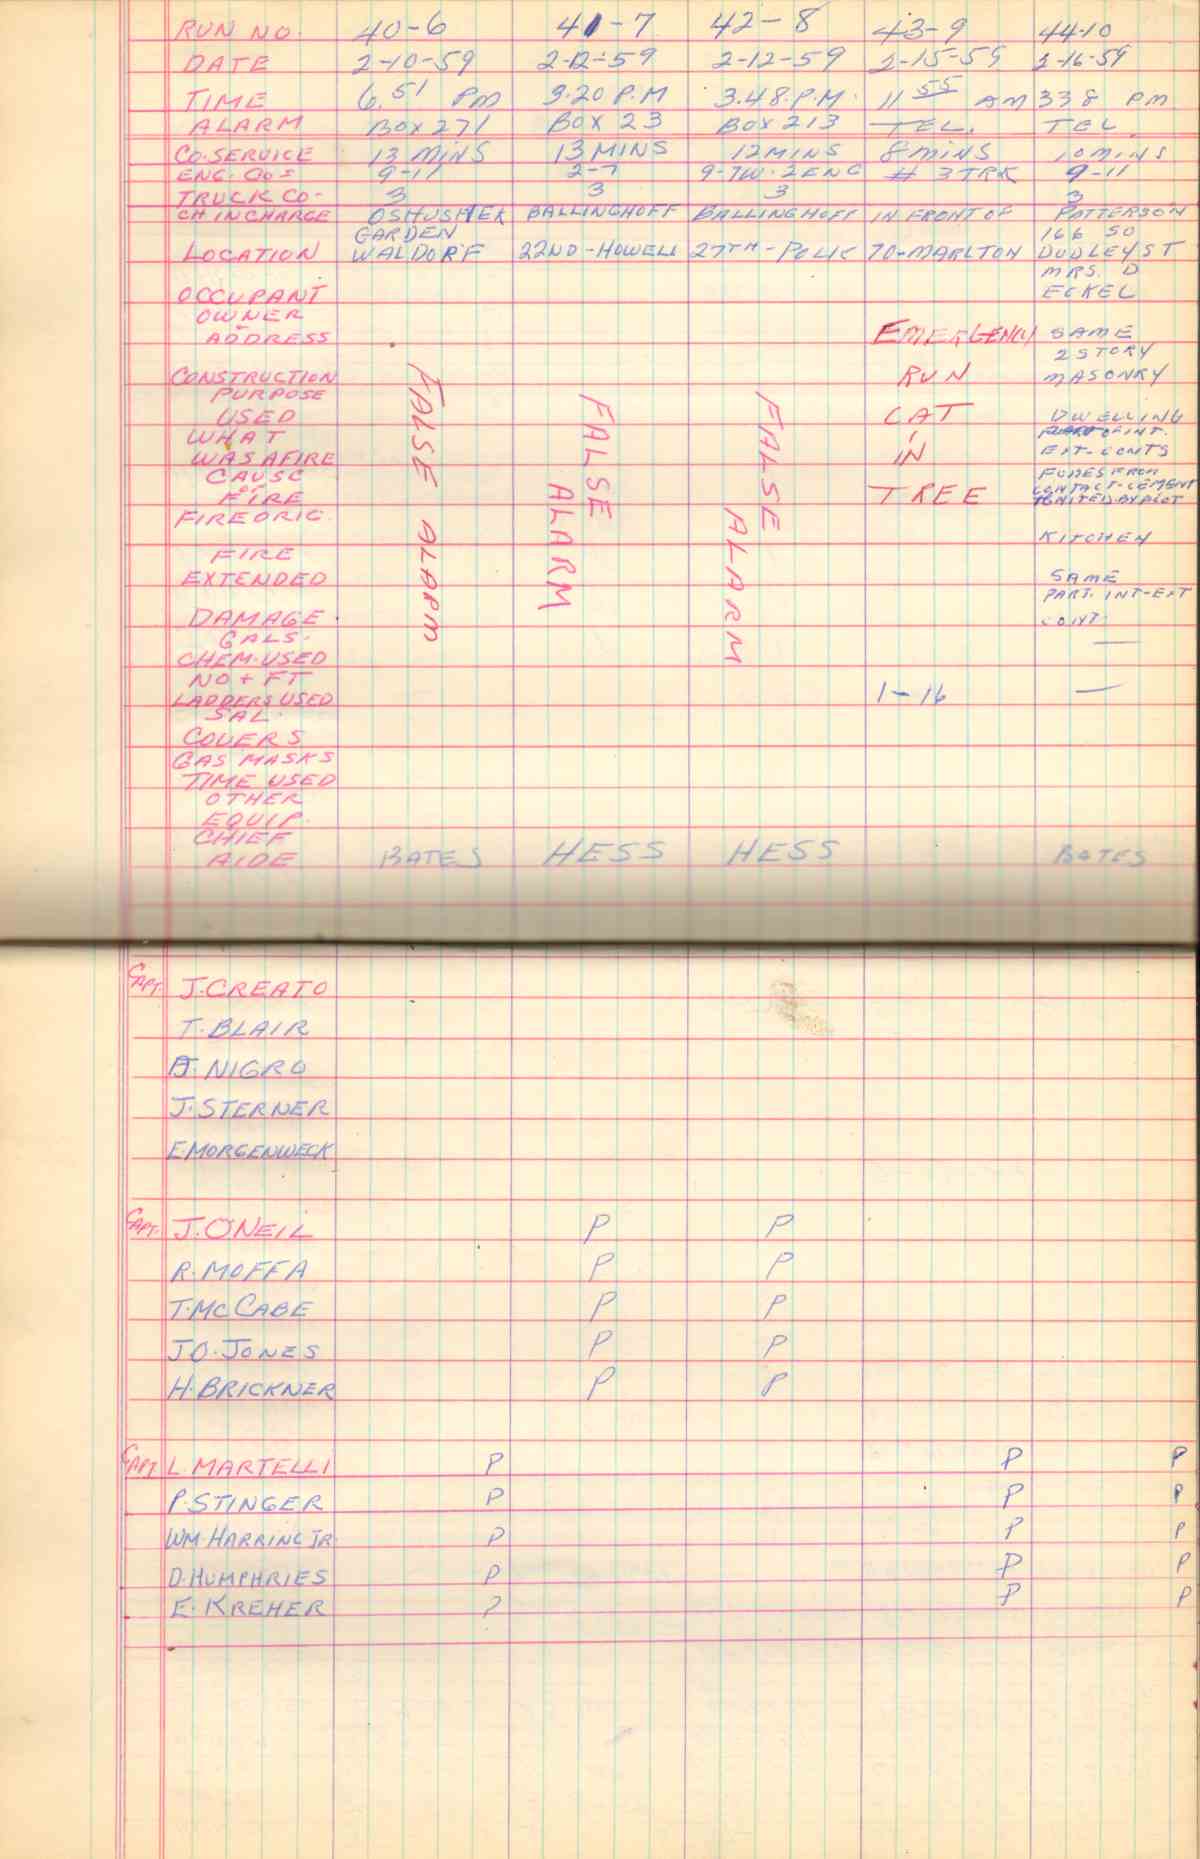 RUN NO. 40-6 41-7 42-8 43-9 44-10
DATE 2-10-59 2-12-59 2-12-59 2-15-59 2-16-59
TIME 6.51 PM 3.20 P.M 3.48.P.M. 11 55 AM 338 PM
ALARM BOX 271 BOX 23 BOX 213 TEL. TEL
CO. SERVICE 13 MINS 13 MINS 12 MINS 8 MINS 10 MINS
ENG. COS 9-11 2-7 9-7W. 2 ENG # 3 TRK 9-11
TRUCK CO- 3 3 3 3
CH IN CHARGE BALLINGHOFF BALLINGHOFF IN FRONT OF PATTERSON
GARDEN 166 SO
LOCATION WALDORF 22ND-HOWELL 27TH-POLK 70-MARLTON DUDLEY ST
MRS. D
OCCUPANT ECKEL
OWNER
ADDRESS EMERGENCY SAME
2 STORY
CONSTRUCTION RUN MASONRY
PURPOSE
USED CAT DWELLING
WHAT PART OF INT.
WAS AFIRE IN EXT-CONTS
CAUSE FUMES FROM
OF CONTACT-CEMENT
FIRE TREE IGNITED BY PILOT
FIRE ORIG.
KITCHEN
FIRE
EXTENDED SAME
PART. INT-EXT
DAMAGE. CONT.
GALS.
CHEM. USED —
NO + FT
LADDERS USED 1-16 —
SAL.
COVERS
GAS MASKS
TIME USED
OTHER
EQUIP.
CHIEF
AIDE BATES HESS HESS BATES
FALSE ALARM
FALSE
ALARM
FALSE
ALARM
CAPT. J. CREATO
T. BLAIR
J. NIGRO
J. STERNER
E. MORGENWECK
CAPT. J. O'NEIL P P
R. MOFFA P P
T. McCABE P P
J.O. JONES P P
H. BRICKNER P P
CAPT L. MARTELLI P P P
P. STINGER P P P
WM. HARRING JR. P P P
D. HUMPHRIES P P P
E. KREHER P P P